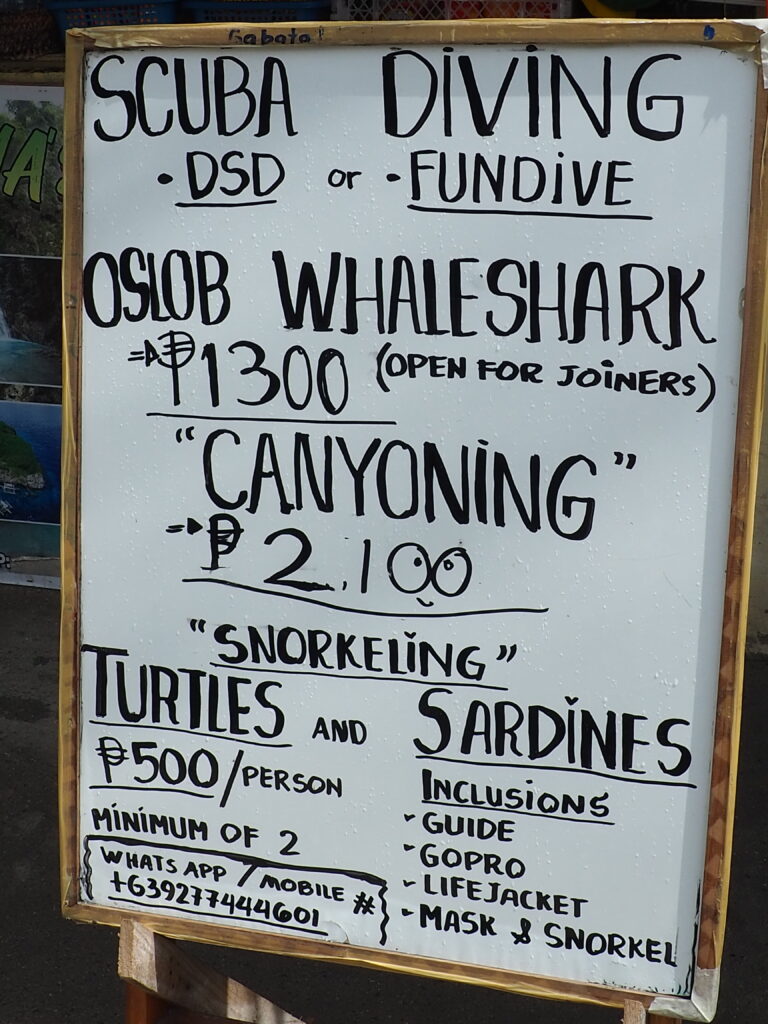 Gabate!
SCUBA DIVING
• DSD or • FUNDIVE
OSLOB WHALESHARK
⇒ ₱1300 (OPEN FOR JOINERS)
"CANYONING"
⇒ ₱ 2,100
"SNORKELING"
TURTLES AND SARDINES
₱500/PERSON
MINIMUM OF 2
WHATS APP / MOBILE #
+6392774444601
INCLUSIONS
- GUIDE
- GOPRO
- LIFEJACKET
- MASK & SNORKEL
A'S